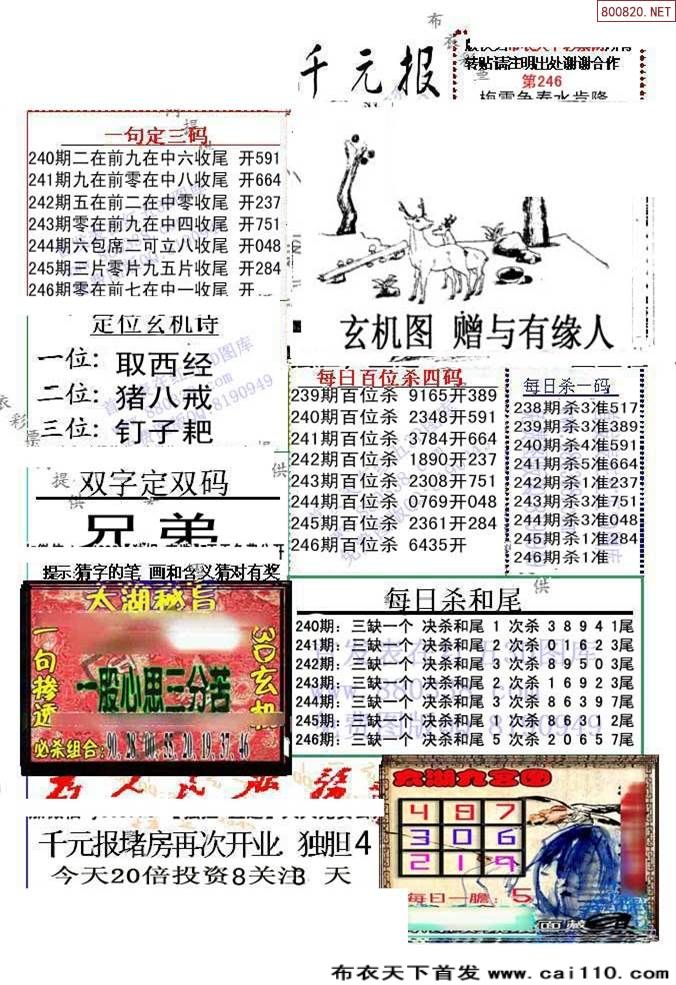 800820.NET
千元报
转贴请注明出处谢谢合作
第246
一句定三码
240期二在前九在中六收尾 开591
241期九在前零在中八收尾 开664
242期五在前二在中零收尾 开237
243期零在前九在中四收尾 开751
244期六包席二可立八收尾 开048
245期三片零片九五片收尾 开284
246期零在前七在中一收尾 开
玄机图 赠与有缘人
定位玄机诗
一位: 取西经
二位: 猪八戒
三位: 钉子耙
每日百位杀四码
239期百位杀 9165开389
240期百位杀 2348开591
241期百位杀 3784开664
242期百位杀 1890开237
243期百位杀 2308开751
244期百位杀 0769开048
245期百位杀 2361开284
246期百位杀 6435开
每日杀一码
238期杀3准517
239期杀3准389
240期杀4准591
241期杀5准664
242期杀1准237
243期杀3准751
244期杀3准048
245期杀1准284
246期杀1准
双字定双码
兄弟
提示:猜字的笔 画和含义猜对有奖
太湖秘旨
一句掺透
3D玄机
一股心思三分苦
必杀组合:90,28,00,55,20,19,37,46
每日杀和尾
240期: 三缺一个 决杀和尾 1 次杀 3 8 9 4 1尾
241期: 三缺一个 决杀和尾 2 次杀 0 1 6 2 3尾
242期: 三缺一个 决杀和尾 3 次杀 8 9 5 0 3尾
243期: 三缺一个 决杀和尾 2 次杀 1 6 9 2 3尾
244期: 三缺一个 决杀和尾 3 次杀 8 6 3 9 7尾
245期: 三缺一个 决杀和尾 9 次杀 8 6 3 1 2尾
246期: 三缺一个 决杀和尾 5 次杀 2 0 6 5 7尾
千元报堵房再次开业 独胆4
今天20倍投资8关注3 天
太湖九宫图
4 8 7
3 0 6
2 1 9
每日一胆: 5
布衣天下首发 www.cai110.com